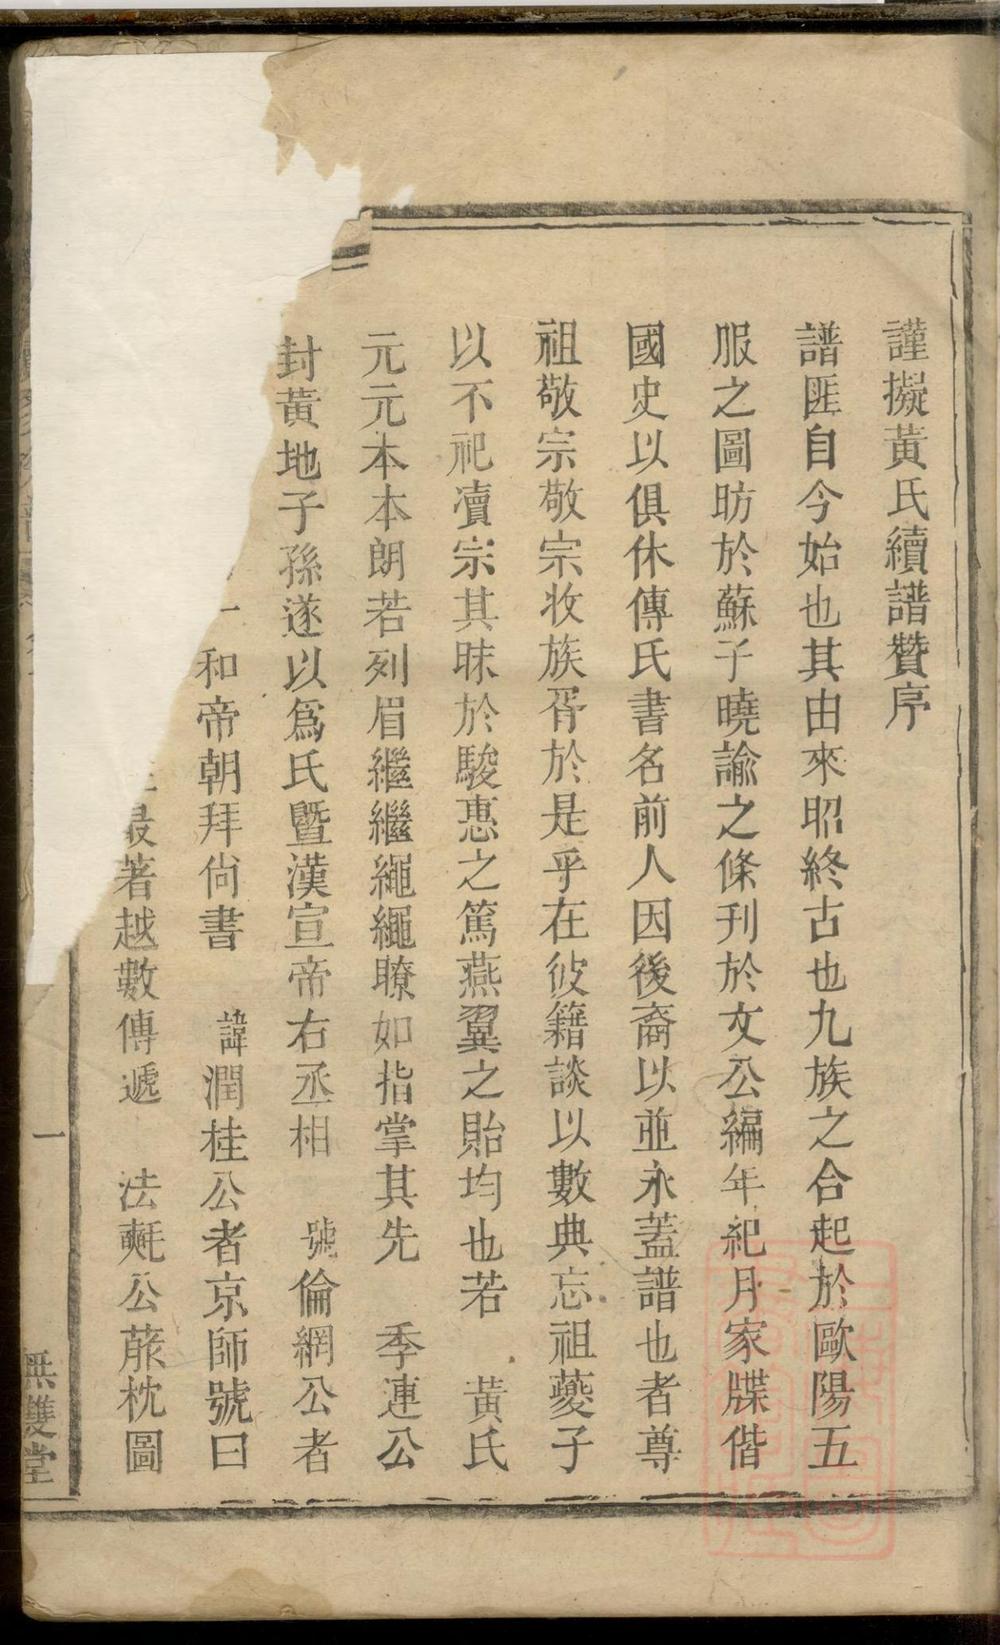 謹擬黃氏續譜贊序
譜匪自今始也其由來昭終古也九族之合起於歐陽五
服之圖昉於蘇子曉諭之條刊於文公編年紀月家牒偕
國史以俱休傳氏書名前人因後裔以並永蓋譜也者尊
祖敬宗敬宗收族胥於是乎在彼籍談以數典忘祖蘷子
以不祀賣宗其昧於駿惠之篤燕翼之貽均也若 黃氏
元元本本朗若列眉繼繼繩繩瞭如指掌其先 季連公
封黃地子孫遂以爲氏暨漢宣帝右丞相 號倫網公者
和帝朝拜尙書 諱潤桂公者京師號曰
最著越數傳遞 法㲠公蔴枕圖
一
無雙堂